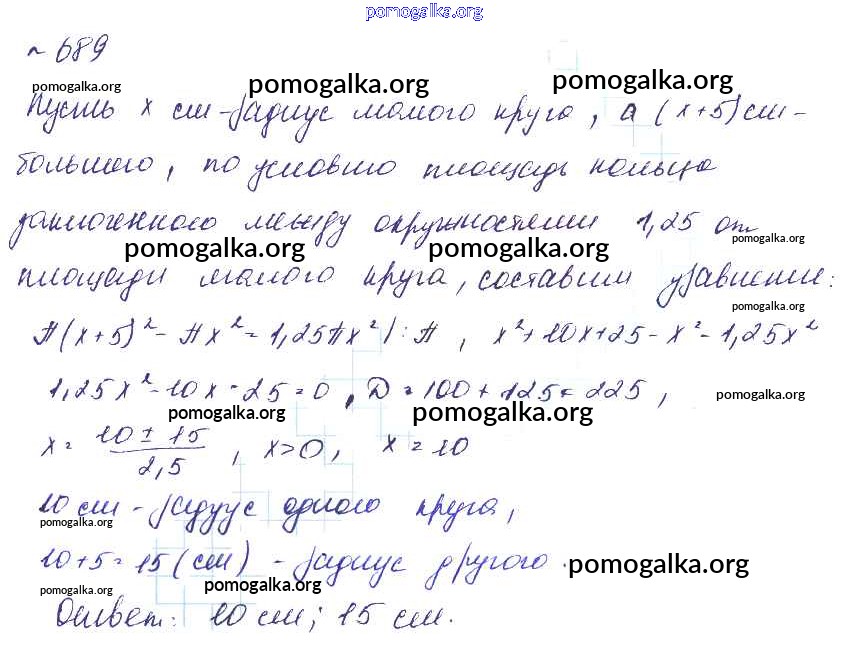 pomogalka.org
~ 689
pomogalka.org pomogalka.org pomogalka.org
Пусть x см - радиус малого круга, а (x+5) см -
большого, по условию площадь кольца
заключенного между окружностями 1,25 от
pomogalka.org pomogalka.org pomogalka.org
площади малого круга, составим уравнение:
pomogalka.org
π(x+5)² - πx² = 1,25πx² | : π , x² + 10x + 25 - x² - 1,25x²
1,25x² - 10x - 25 = 0 , D = 100 + 125 = 225 ,
pomogalka.org
pomogalka.org pomogalka.org
x = 10 ± 15 / 2,5 , x > 0 , x = 10
10 см - радиус одного круга,
pomogalka.org
10 + 5 = 15 (см) - радиус другого .
pomogalka.org
pomogalka.org pomogalka.org
Ответ: 10 см; 15 см.